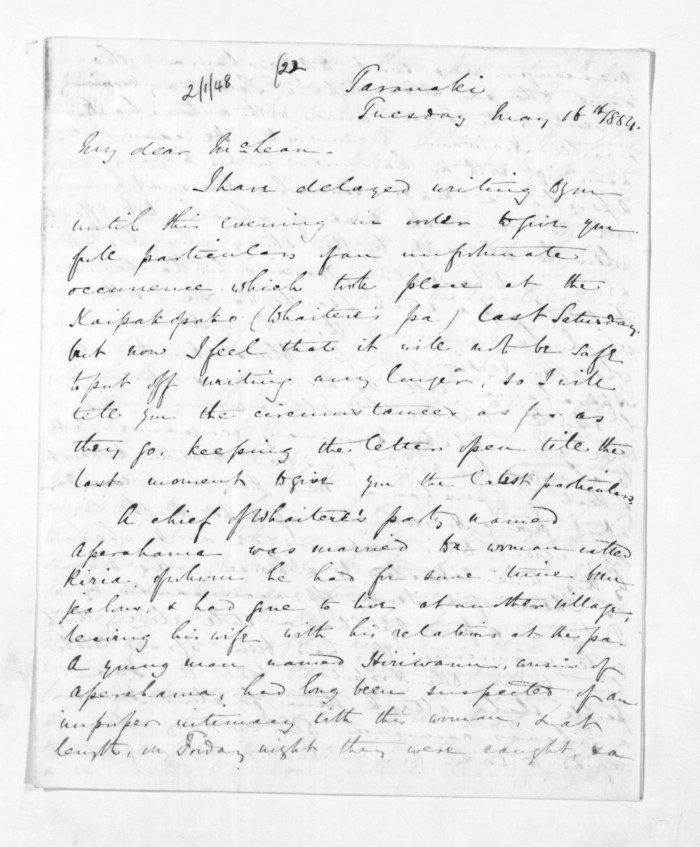 2/1/48
(22
Taranaki
Tuesday May 16th 1854.
My dear McLean.
I have delayed writing to you
until this evening in order to give you
full particulars of an unfortunate
occurrence which took place at the
Kaipakopako (Whaitere's pa) last Saturday.
but now I feel that it will not be safe
to put off writing any longer, so I will
tell you the circumstances as far as
they go, keeping the letter open till the
last moment to give you the latest particulars.
A chief of Whaitere's party named
Aperahama was married to a woman called
Riria, of whom he had for some time been
jealous, & had gone to live at another village,
leaving his wife with his relations at the pa.
A young man named Hiriwanu, cousin of
Aperahama, had long been suspected of an
improper intimacy with this woman, & at
length, on Friday night they were caught & a